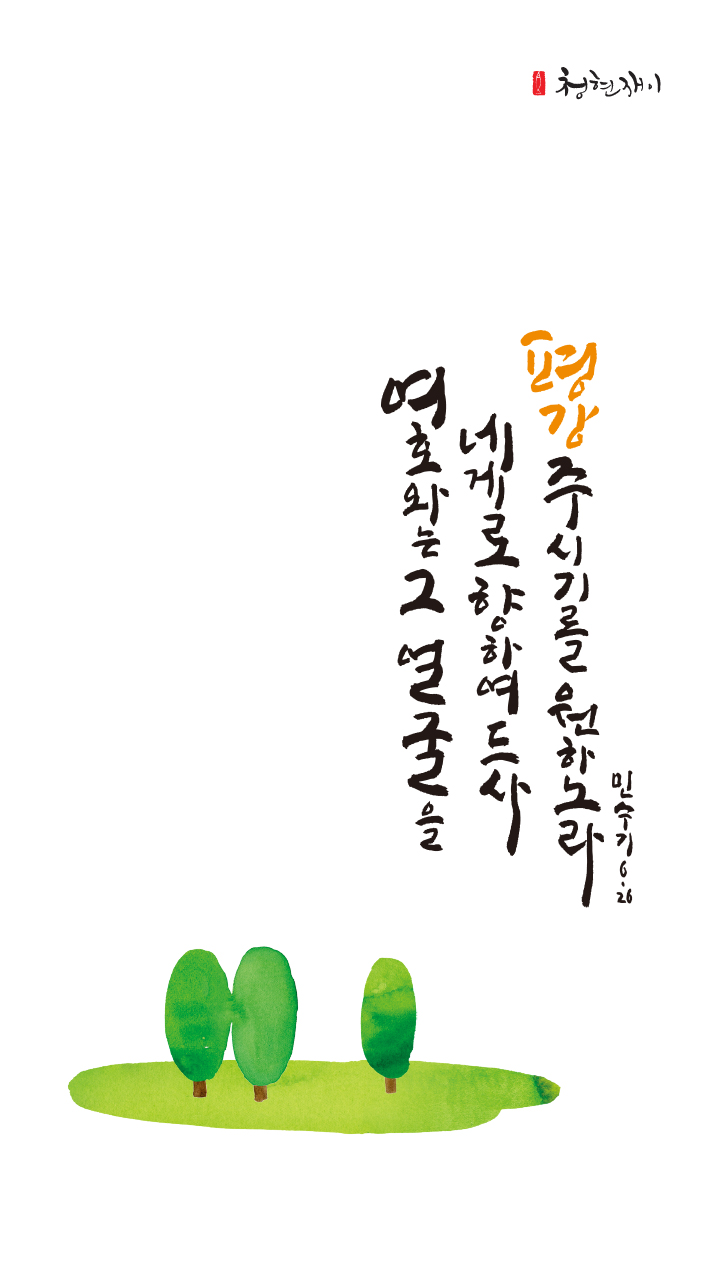 청현재이
여호와는 그 얼굴을
네게로 향하여 드사
평강 주시기를 원하노라
민수기 6.26